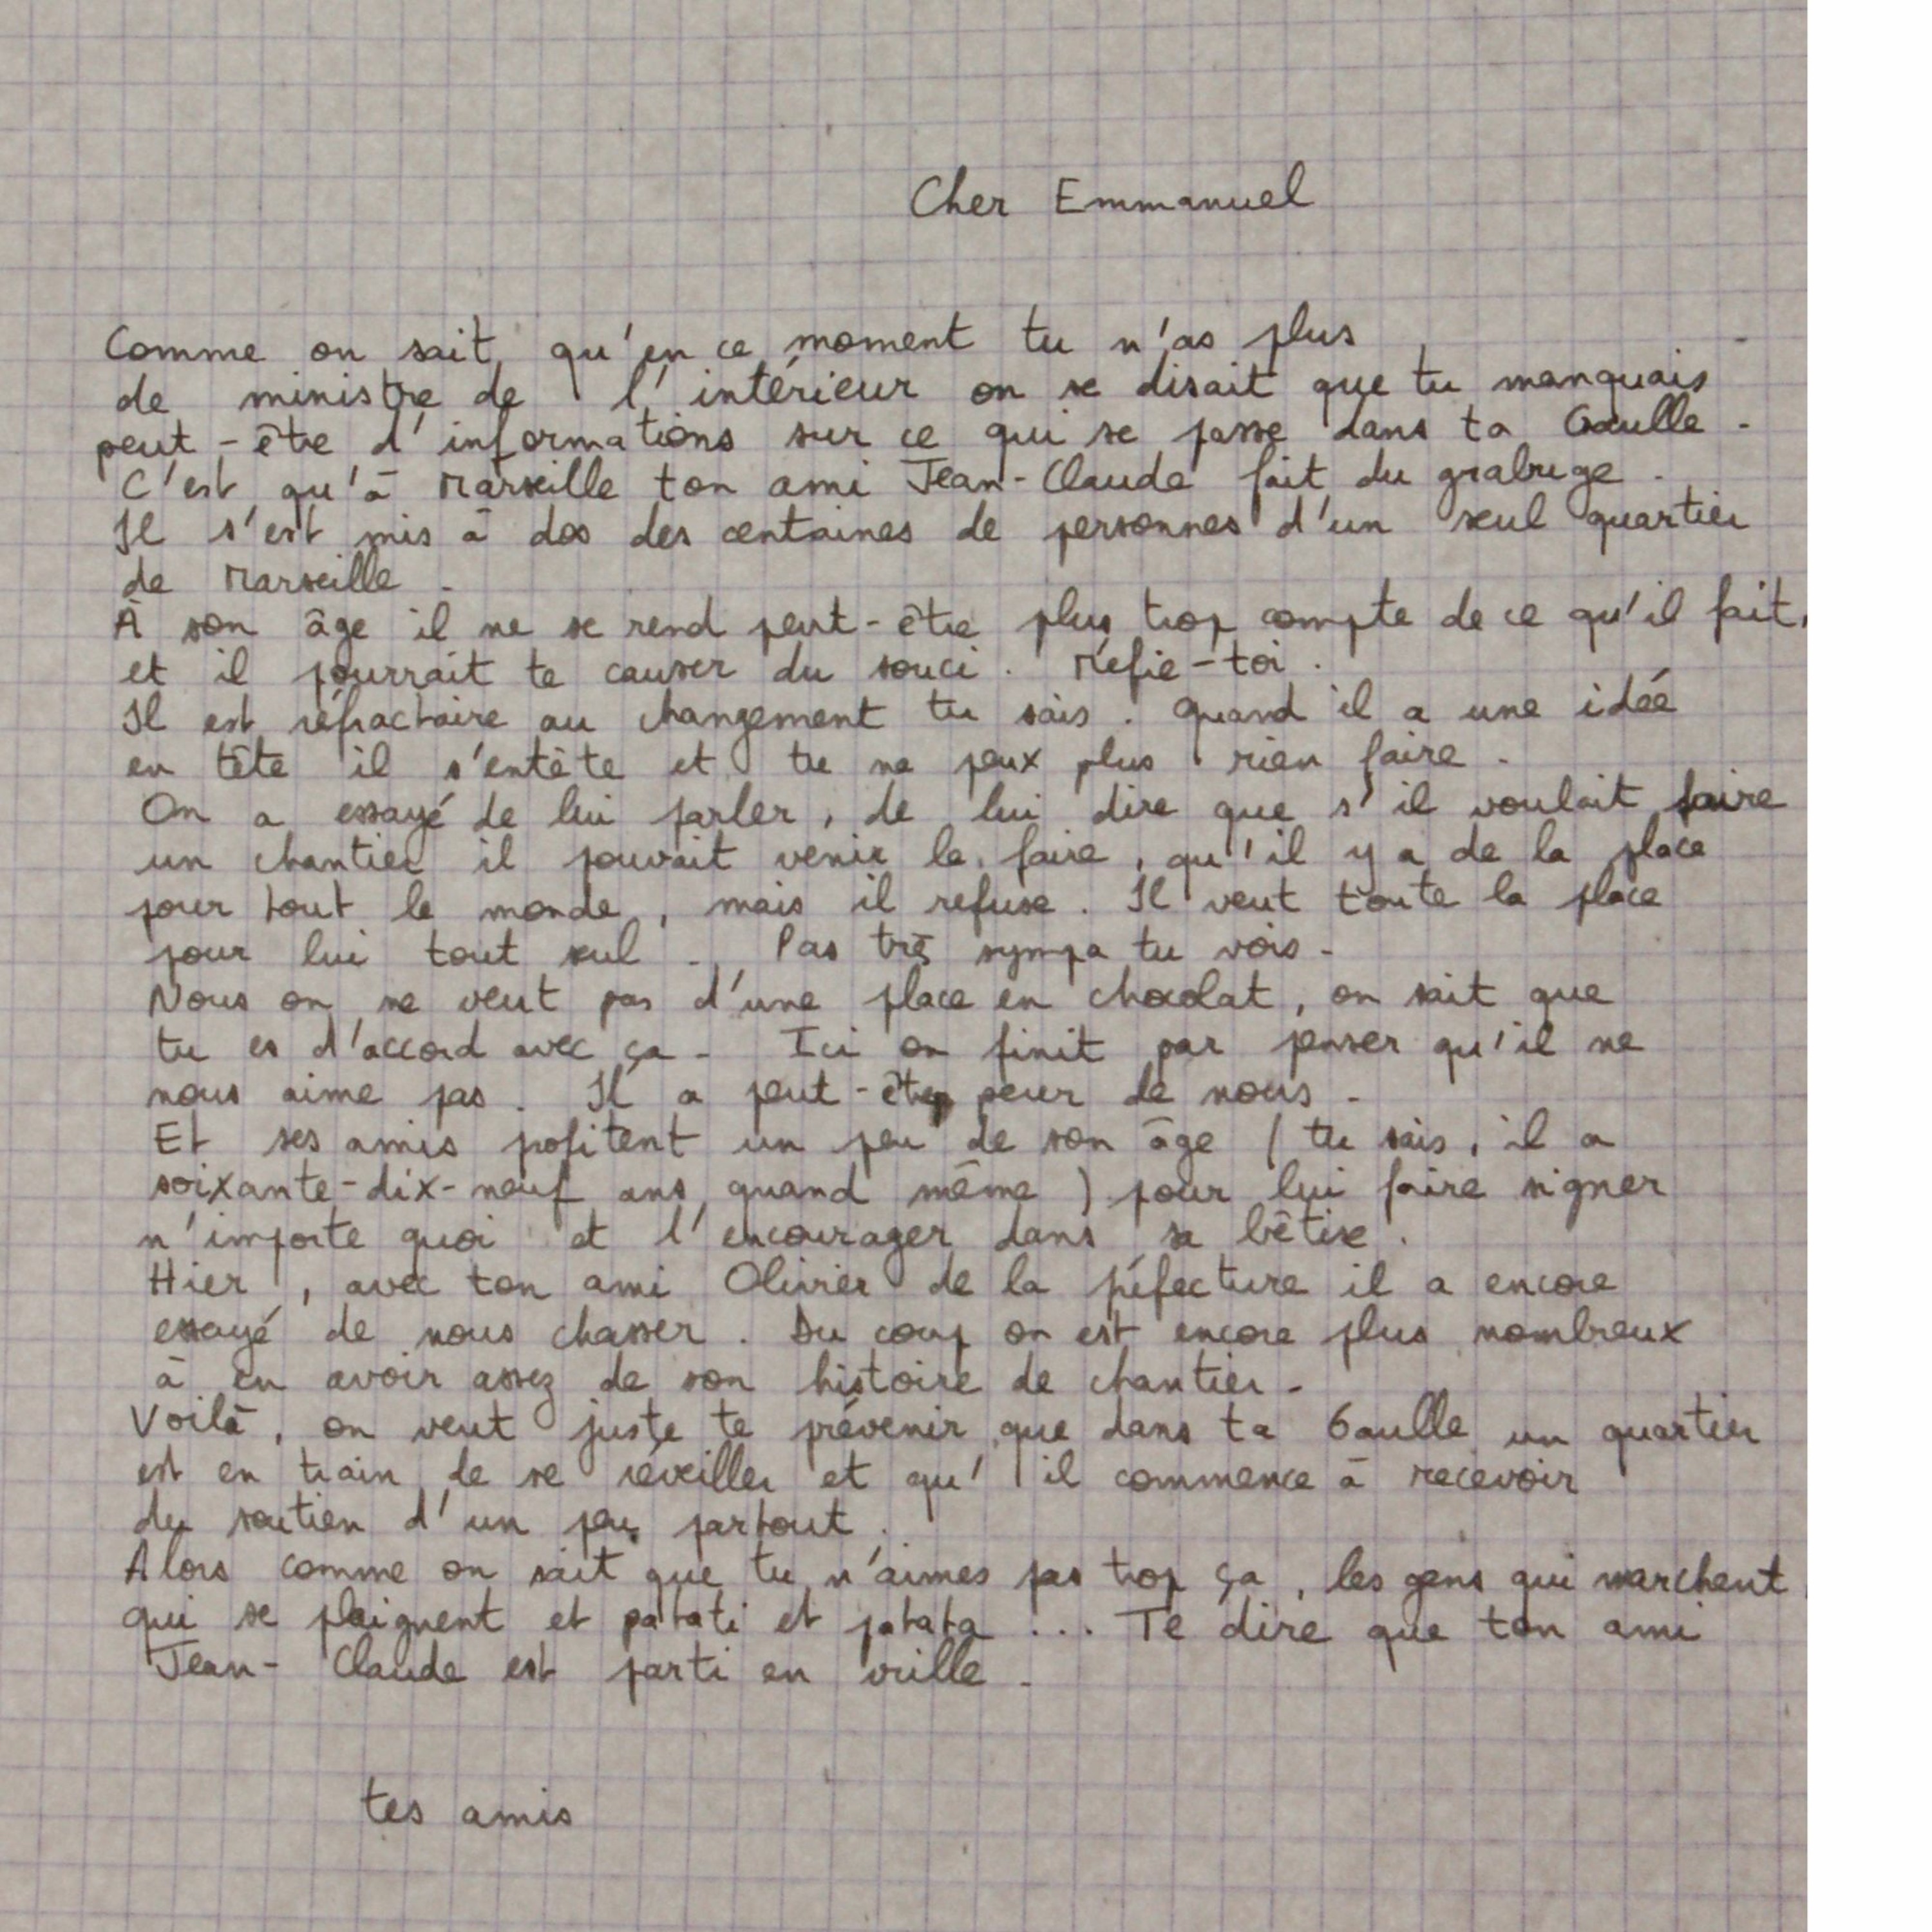 Cher Emmanuel
Comme on sait qu'en ce moment tu n'as plus
de ministre de l'intérieur on se disait que tu manquais
peut-être d'informations sur ce qui se passe dans ta Gaulle.
C'est qu'à Marseille ton ami Jean-Claude fait du grabuge.
Il s'est mis à dos des centaines de personnes d'un seul quartier
de Marseille.
À son âge il ne se rend peut-être plus trop compte de ce qu'il fait,
et il pourrait te causer du souci. Méfie-toi.
Il est réfractaire au changement tu sais. Quand il a une idée
en tête il s'entête et tu ne peux plus rien faire.
On a essayé de lui parler, de lui dire que s'il voulait faire
un chantier il pouvait venir le faire, qu'il y a de la place
pour tout le monde, mais il refuse. Il veut toute la place
pour lui tout seul. Pas très sympa tu vois.
Nous on ne veut pas d'une place en chocolat, on sait que
tu es d'accord avec ça. Ici on finit par penser qu'il ne
nous aime pas. Il a peut-être peur de nous.
Et ses amis profitent un peu de son âge (tu sais, il a
soixante-dix-neuf ans quand même) pour lui faire signer
n'importe quoi et l'encourager dans sa bêtise.
Hier, avec ton ami Olivier de la préfecture il a encore
essayé de nous chasser. Du coup on est encore plus nombreux
à en avoir assez de son histoire de chantier.
Voilà, on veut juste te prévenir que dans ta Gaulle un quartier
est en train de se réveiller et qu'il commence à recevoir
du soutien d'un peu partout.
Alors comme on sait que tu n'aimes pas trop ça, les gens qui marchent,
qui se plaignent et patati et patata !... Te dire que ton ami
Jean-Claude est parti en vrille.
tes amis